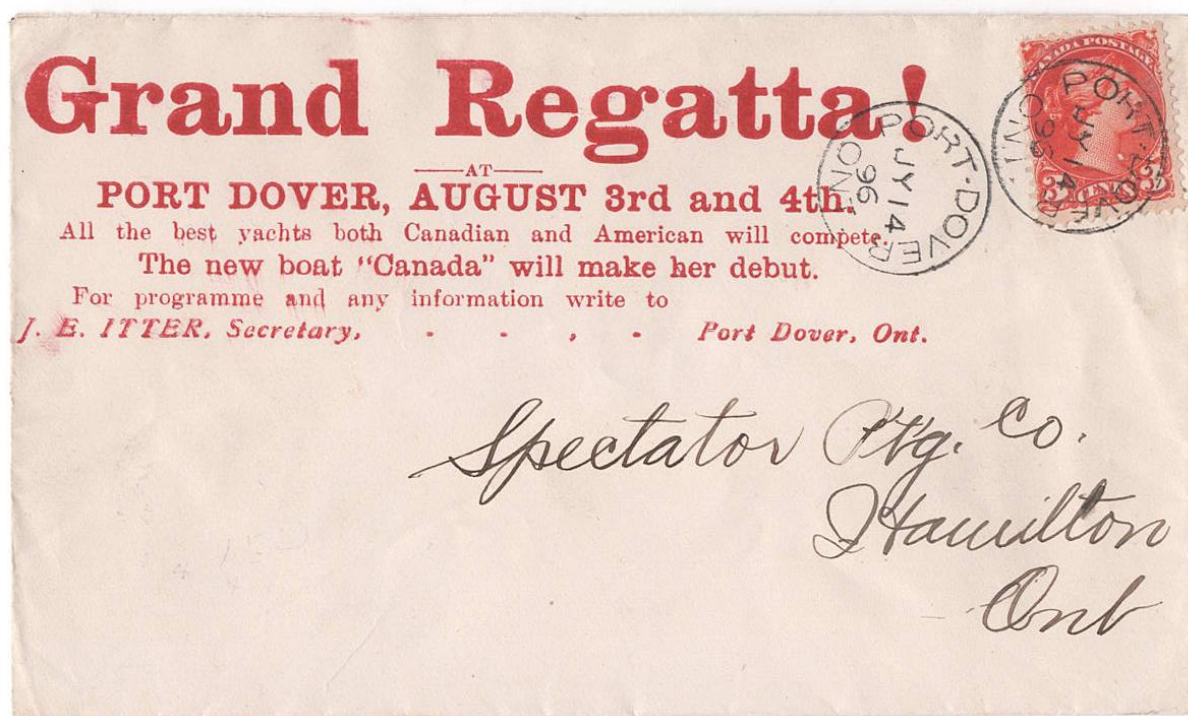 Grand Regatta!
AT
PORT DOVER, AUGUST 3rd and 4th.
All the best yachts both Canadian and American will compete.
The new boat "Canada" will make her debut.
For programme and any information write to
J. E. ITTER, Secretary, - - , - Port Dover, Ont.
PORT-DOVER
JY 14
96
ONT
CANADA POSTAGE
3 CENTS 3
PORT-DOVER
JY 14
96
ONT
Spectator Ptg. Co.
Hamilton
Ont